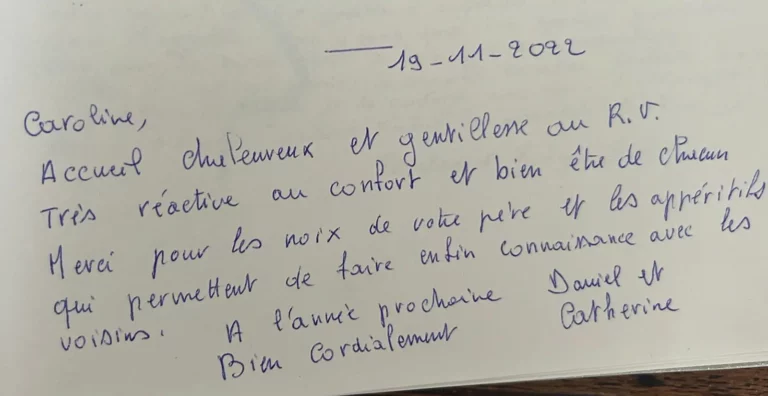 19-11-2022
Caroline,
Accueil chaleureux et gentillesse au R.V.
Très réactive au confort et bien être de chacun
Merci pour les noix de votre père et les appéritifs
qui permettent de faire enfin connaissance avec les
voisins. A l'année prochaine Daniel et
Bien Cordialement Catherine